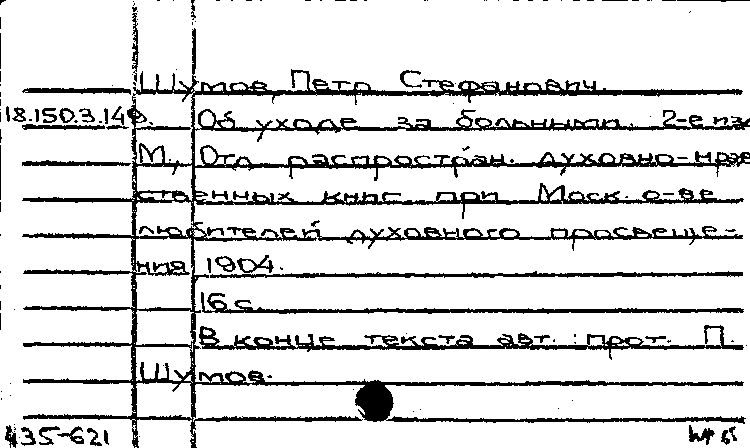 Шумов, Петр Стефанович.
18.150.3.149. Об уходе за больными. 2-е изд
М., Отд. распростран. духовно-нрав
ственных книг при Моск. о-ве
любителей духовного просвеще-
ния, 1904.
16 с.
В конце текста авт.: прот. П.
Шумов.
435-621